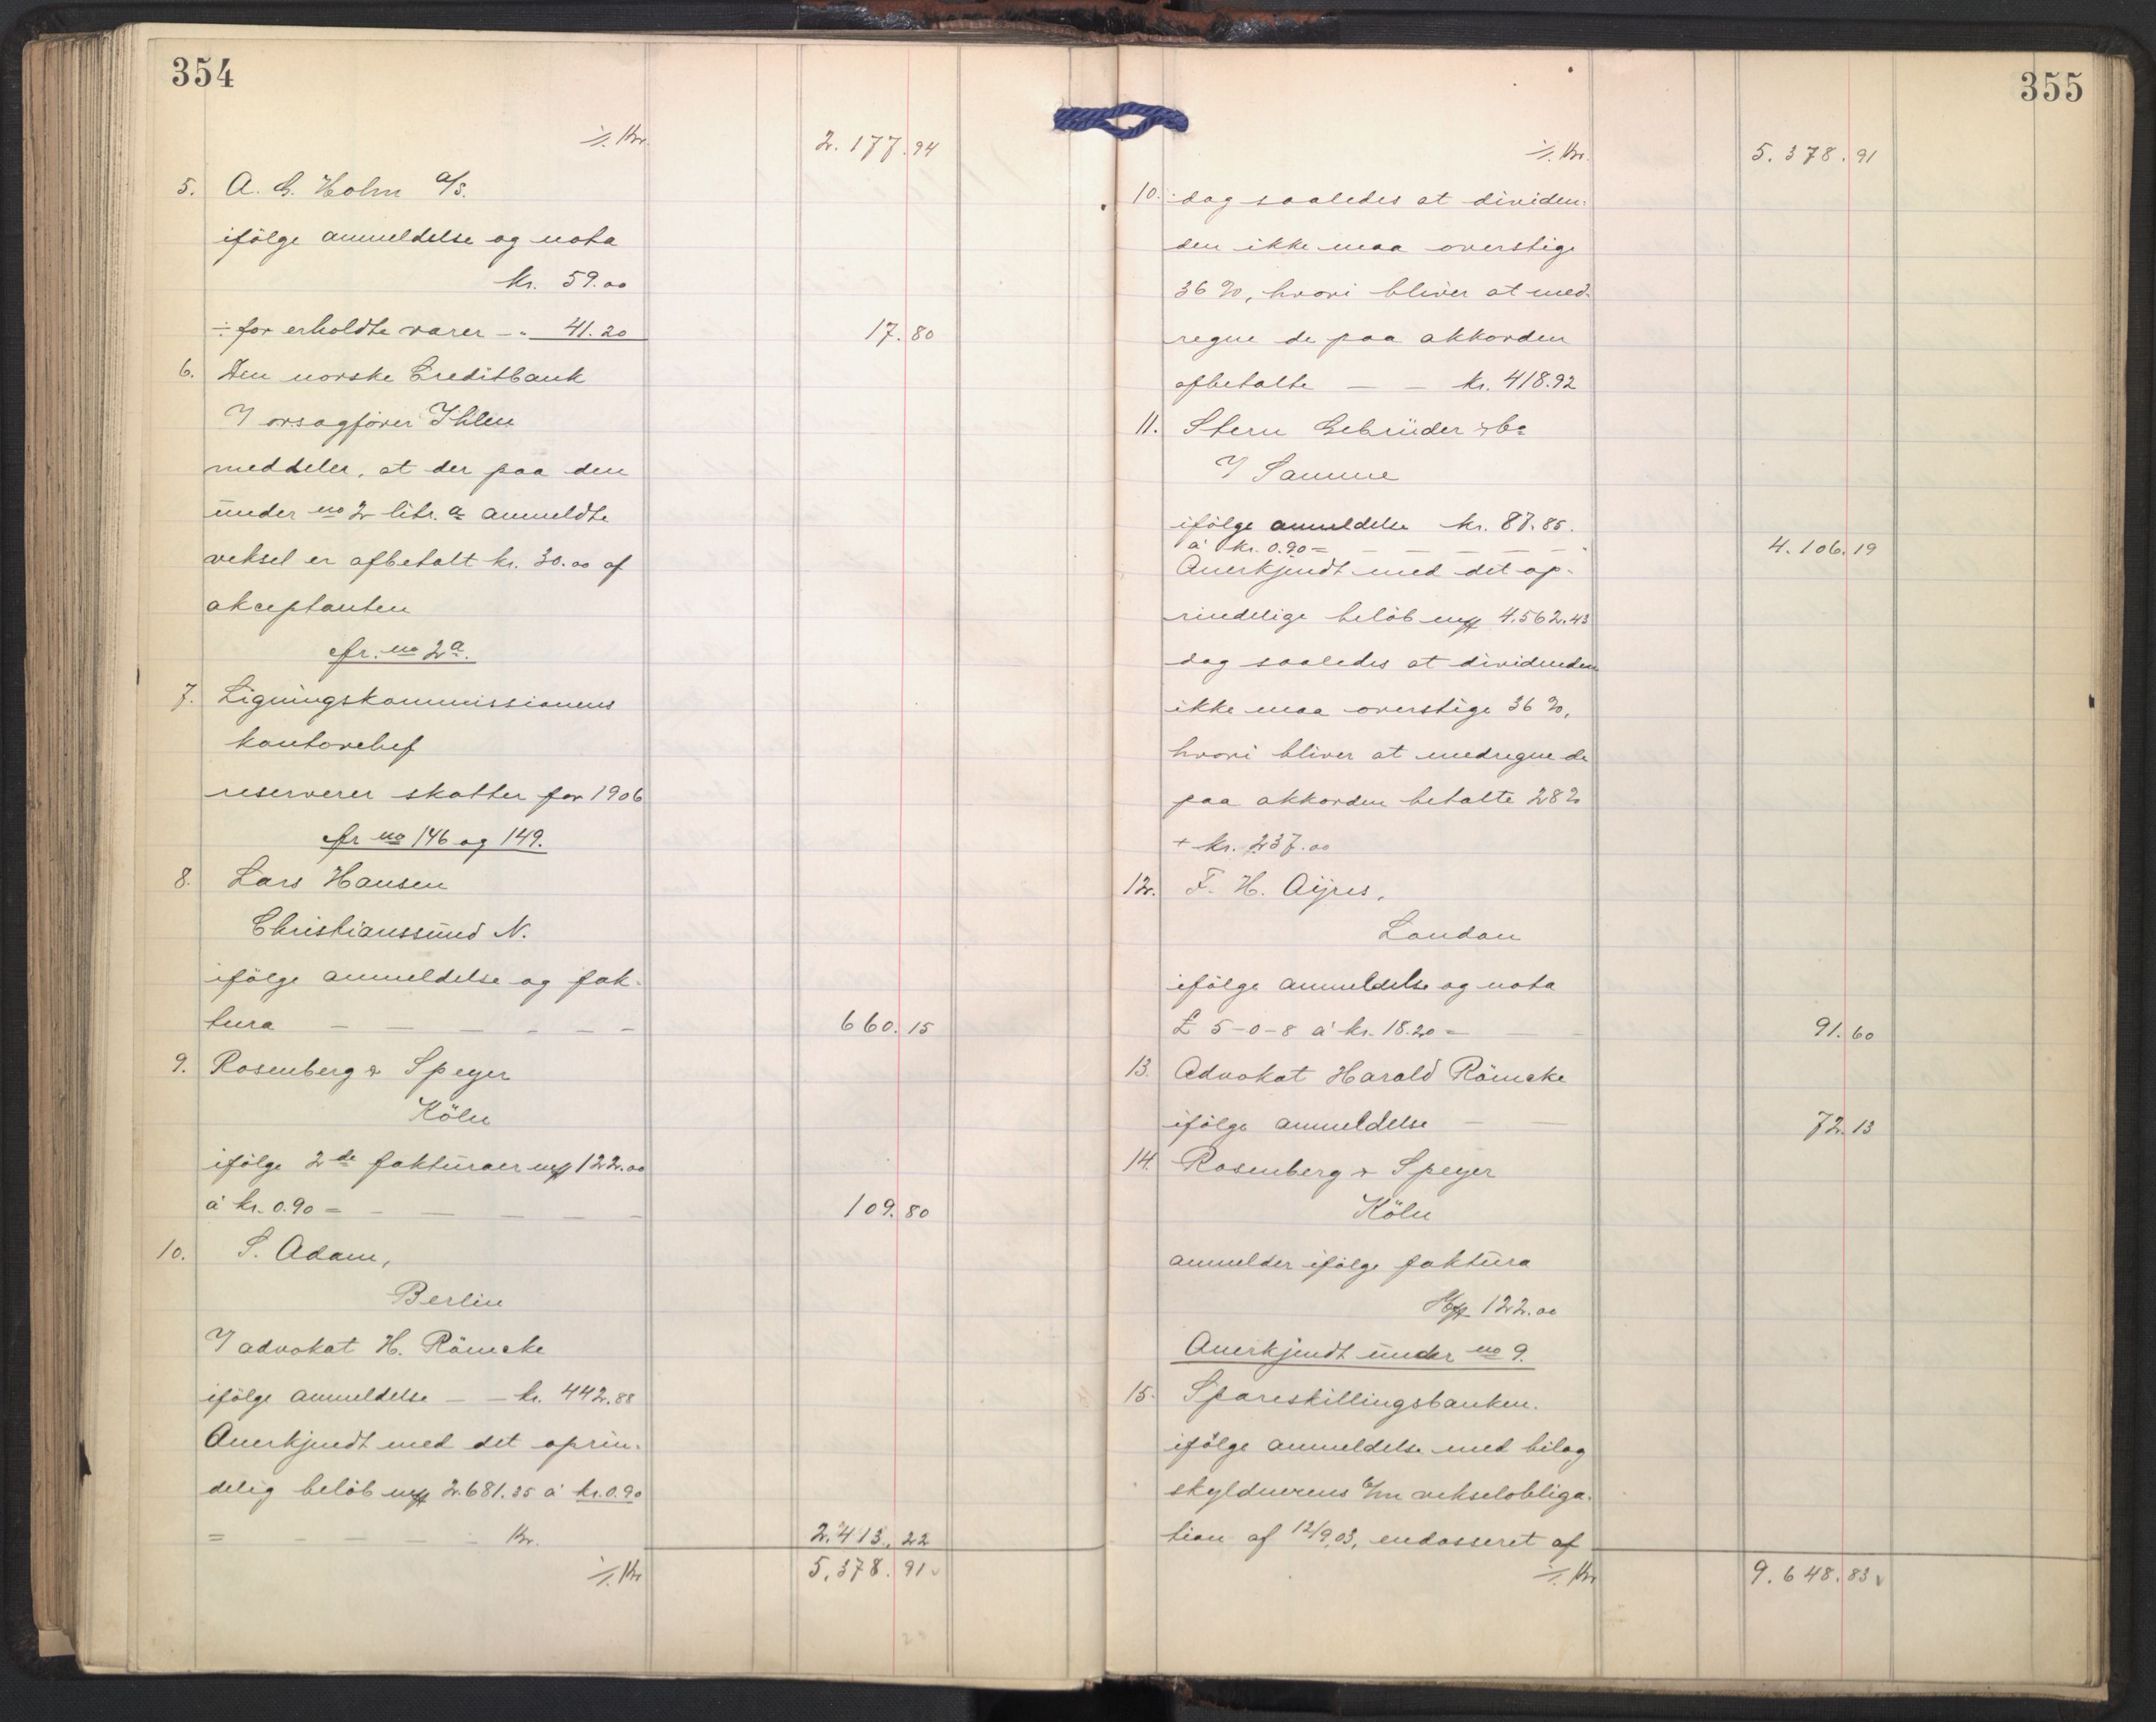 354
·/. Kr. 2.177.94
5. A. G. Holm a/s.
ifölge anmeldelse og nota
kr. 59.00
÷ for erholdte varer - " 41.20 17.80
6. Den norske Creditbank
V orsagförer Ihlen
meddeler, at der paa den
under no 2 litr. a anmeldte
veksel er afbetalt kr. 30.00 af
akceptanten
cfr. no 2a.
7. Ligningskommissionens
kontorchef
reserverer skatter for 1906
cfr no 146 og 149.
8. Lars Hansen
Christianssund N.
ifölge anmeldelse og fak-
tura — — — — — — 660.15
9. Rosenberg & Speyer
Köln
ifölge 2de fakturaer mk 122.00
á kr. 0.90 = — — — — — 109.80
10. S. Adam,
Berlin
V advokat H. Römcke
ifölge anmeldelse — — kr. 442.88
Anerkjendt med det oprin-
delig belöb mk 2.681.35 á kr. 0.90
= — — — — Kr. 2.413.22
·/. Kr 5.378.91
355
·/. Kr. 5.378.91
10. dog saaledes at dividen-
den ikke maa overstige
36 %, hvori bliver at med-
regne de paa akkorden
afbetalte — — kr. 418.92
11. Stern Gebrüder & Co
V Samme
ifölge anmeldelse kr. 87.85.
á kr. 0.90 = — — — — — 4.106.19
Anerkjendt med det op-
rindelige belöb mk 4.562.43
dog saaledes at dividenden
ikke maa overstige 36 %,
hvori bliver at medregne de
paa akkorden betalte 28 %
+ kr. 237.00
12. F. H. Ayres,
London
ifölge anmeldelse og nota
£ 5-0-8 á kr. 18.20 = — — 91.60
13. Advokat Harald Römcke
ifölge anmeldelse — — 72.13
14. Rosenberg & Speyer
Köln
anmelder ifölge faktura
Mk 122.00
Anerkjendt under no 9.
15. Spareskillingsbanken.
ifölge anmeldelse med bilag
skyldnerens 6/m vekselobliga-
tion af 12/9.03, endosseret af
·/. Kr 9.648.83